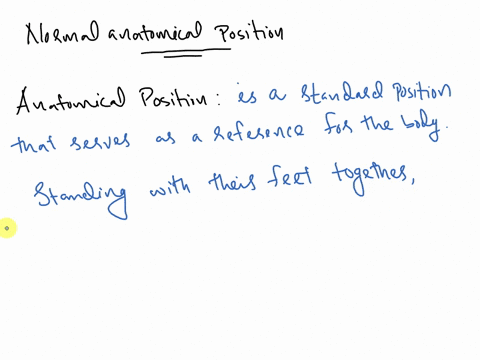 Normal anatomical Position
Anatomical Position: is a standard position
that serves as a reference for the body.
Standing with their feet together,